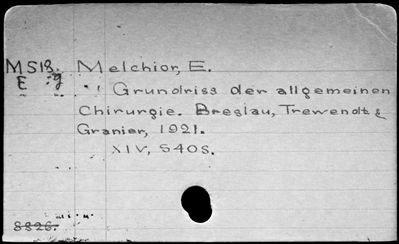 MS18. Melchior, E.
E g
Grundriss der allgemeinen
Chirurgie. Breslau, Trewendt &
Granier, 1921.
XIV, 540S.
8826.